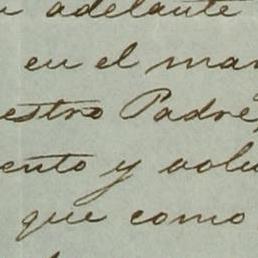 adelante
en el mar
estro Padre,
ento y volu
que como